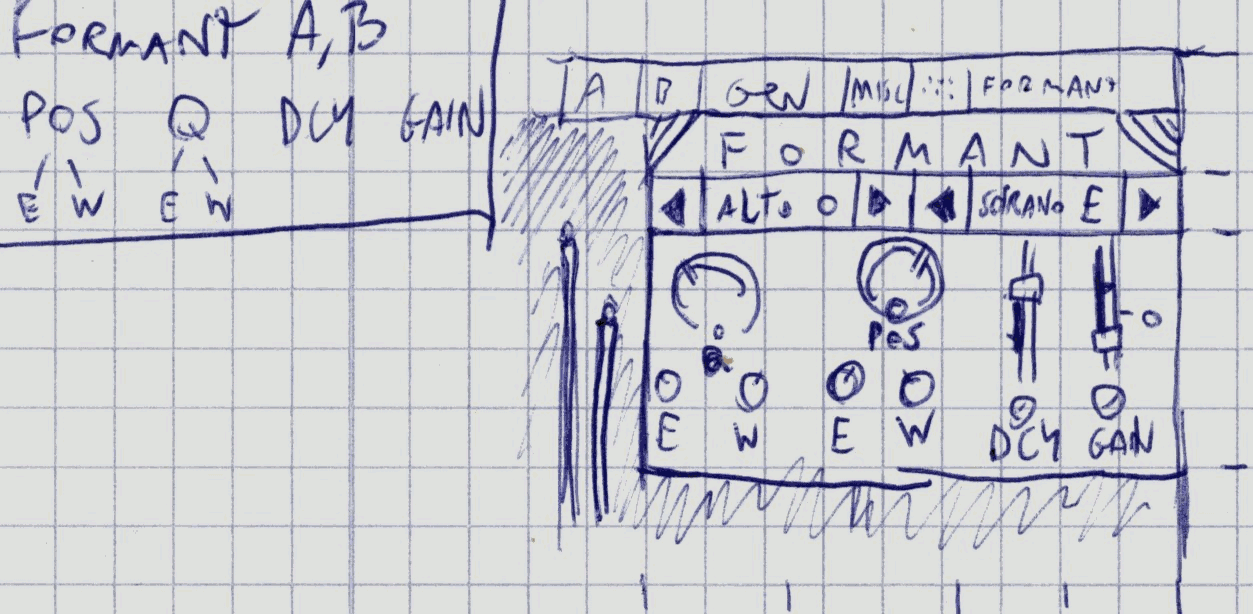 FORMANT A,B
POS Q DCY GAIN
E W E W
A B GEN MISC FORMANT
FORMANT
ALTO O SOPRANO E
POS
Q
E W E W DCY GAIN